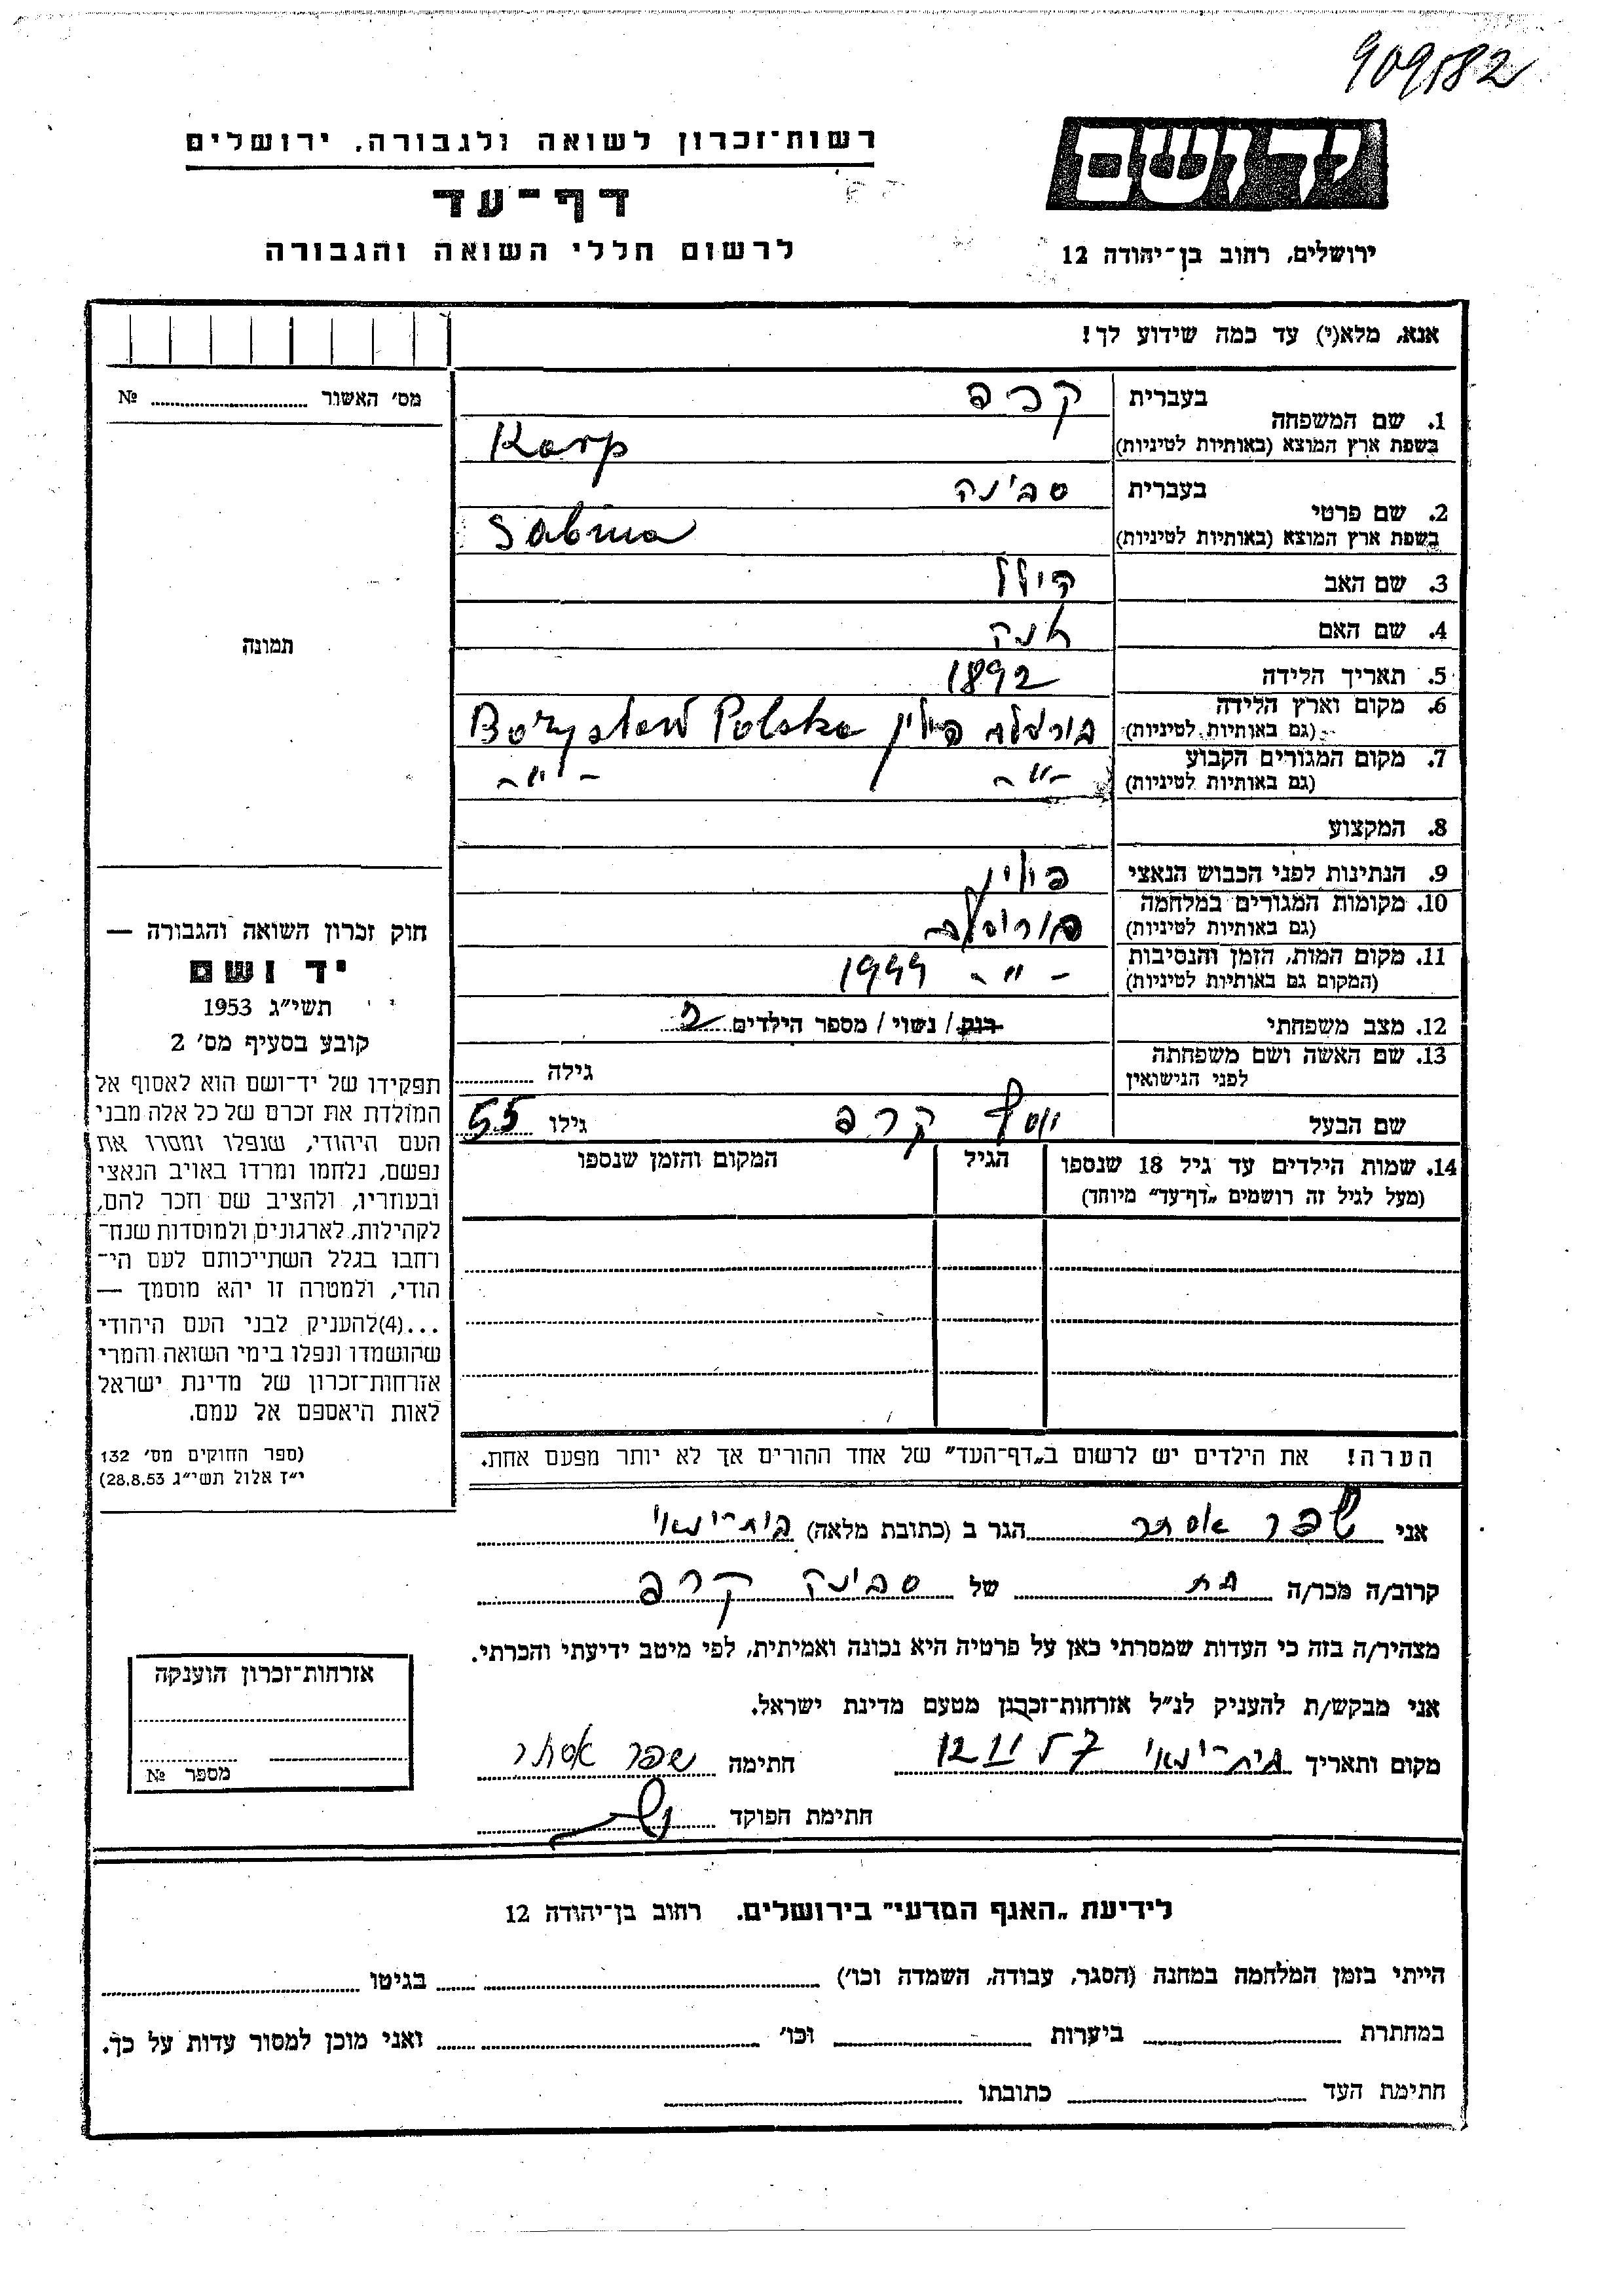 909582
יד ושם
ירושלים, רחוב בן־יהודה 12
רשות־זכרון לשואה ולגבורה, ירושלים
דף־עד
לרשום חללי השואה והגבורה
אנא, מלא(י) עד כמה שידוע לך!
1. שם המשפחה בעברית קרפ
בשפת ארץ המוצא (באותיות לטיניות) Karp
2. שם פרטי בעברית סבינה
בשפת ארץ המוצא (באותיות לטיניות) Sabina
3. שם האב הילל
4. שם האם אנה
5. תאריך הלידה 1892
6. מקום וארץ הלידה
(גם באותיות לטיניות) פולין Borysław Polska
7. מקום המגורים הקבוע
(גם באותיות לטיניות) -"- -"-
8. המקצוע
9. הנתינות לפני הכבוש הנאצי פולין
10. מקומות המגורים במלחמה
(גם באותיות לטיניות)
11. מקום המות, הזמן והנסיבות
(המקום גם באותיות לטיניות) -"- 1944
12. מצב משפחתי רווק / נשוי / מספר הילדים 2
13. שם האשה ושם משפחתה
לפני הנישואין גילה
שם הבעל יוסף קרפ גילו 55
14. שמות הילדים עד גיל 18 שנספו הגיל המקום והזמן שנספו
(מעל לגיל זה רושמים "דף־עד" מיוחד)
הערה! את הילדים יש לרשום ב"דף־העד" של אחד ההורים אך לא יותר מפעם אחת.
מס' האשור №
תמונה
חוק זכרון השואה והגבורה —
יד ושם
תשי"ג 1953
קובע בסעיף מס' 2
תפקידו של יד־ושם הוא לאסוף אל
המולדת את זכרם של כל אלה מבני
העם היהודי, שנפלו ומסרו את
נפשם, נלחמו ומרדו באויב הנאצי
ובעוזריו, ולהציב שם וזכר להם,
לקהילות, לארגונים ולמוסדות שנח־
רבו בגלל השתייכותם לעם הי־
הודי, ולמטרה זו יהא מוסמך —
...(4)להעניק לבני העם היהודי
שהושמדו ונפלו בימי השואה והמרי
אזרחות־זכרון של מדינת ישראל
לאות היאספם אל עמם.
(ספר החוקים מס' 132
י"ז אלול תשי"ג 28.8.53)
אני שפר אסתר הגר ב (כתובת מלאה) בית־ינאי
קרוב/ה מכר/ה בת של סבינה קרפ
מצהיר/ה בזה כי העדות שמסרתי כאן על פרטיה היא נכונה ואמיתית, לפי מיטב ידיעתי והכרתי.
אני מבקש/ת להעניק לנ"ל אזרחות־זכרון מטעם מדינת ישראל.
מקום ותאריך בית־ינאי 12 II 57 חתימה שפר אסתר
חתימת הפוקד
אזרחות־זכרון הוענקה
מספר №
לידיעת "האגף המדעי" בירושלים. רחוב בן־יהודה 12
הייתי בזמן המלחמה במחנה (הסגר, עבודה, השמדה וכו') בגיטו
במחתרת ביערות וכו' ואני מוכן למסור עדות על כך.
חתימת העד כתובתו